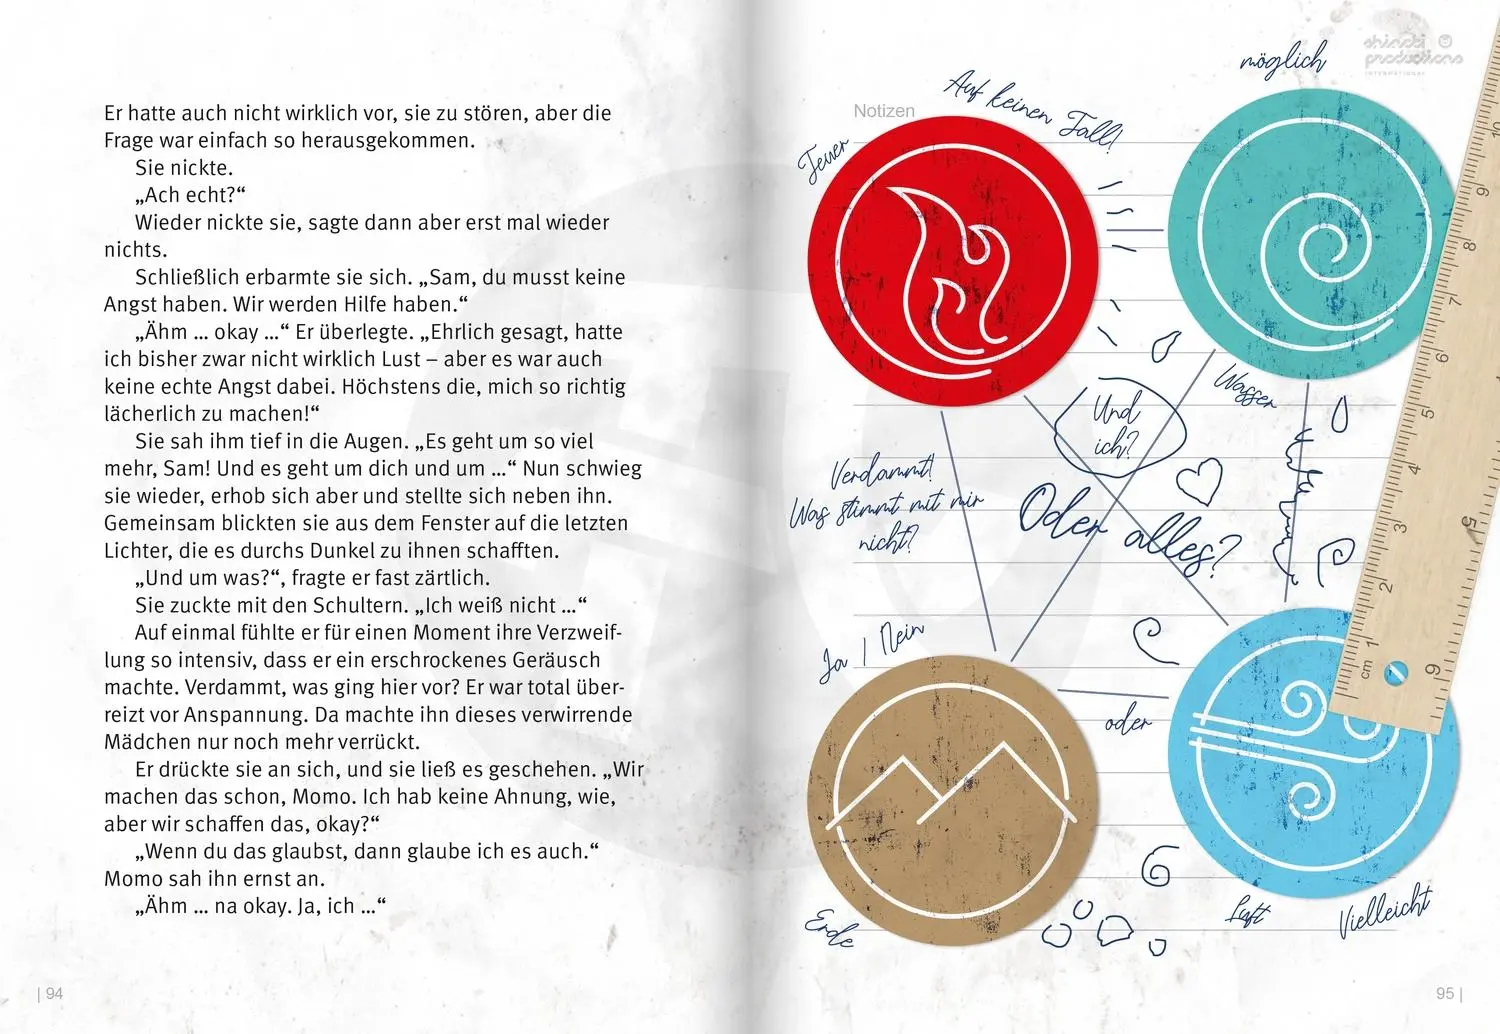 Er hatte auch nicht wirklich vor, sie zu stören, aber die
Frage war einfach so herausgekommen.
Sie nickte.
„Ach echt?“
Wieder nickte sie, sagte dann aber erst mal wieder
nichts.
Schließlich erbarmte sie sich. „Sam, du musst keine
Angst haben. Wir werden Hilfe haben.“
„Ähm ... okay ...“ Er überlegte. „Ehrlich gesagt, hatte
ich bisher zwar nicht wirklich Lust – aber es war auch
keine echte Angst dabei. Höchstens die, mich so richtig
lächerlich zu machen!“
Sie sah ihm tief in die Augen. „Es geht um so viel
mehr, Sam! Und es geht um dich und um ...“ Nun schwieg
sie wieder, erhob sich aber und stellte sich neben ihn.
Gemeinsam blickten sie aus dem Fenster auf die letzten
Lichter, die es durchs Dunkel zu ihnen schafften.
„Und um was?“, fragte er fast zärtlich.
Sie zuckte mit den Schultern. „Ich weiß nicht ...“
Auf einmal fühlte er für einen Moment ihre Verzweif-
lung so intensiv, dass er ein erschrockenes Geräusch
machte. Verdammt, was ging hier vor? Er war total über-
reizt vor Anspannung. Da machte ihn dieses verwirrende
Mädchen nur noch mehr verrückt.
Er drückte sie an sich, und sie ließ es geschehen. „Wir
machen das schon, Momo. Ich hab keine Ahnung, wie,
aber wir schaffen das, okay?“
„Wenn du das glaubst, dann glaube ich es auch.“
Momo sah ihn ernst an.
„Ähm ... na okay. Ja, ich ...“
| 94
shinobi
productions
INTERNATIONAL
möglich
Notizen
Auf keinen Fall!
Feuer
Wasser
Und
ich?
Verdammt!
Was stimmt mit mir
nicht?
Oder alles?
Warum
Ja / Nein
oder
Erde
Luft
Vielleicht
cm 1 2 3 4 5 6 7 8 9 10
95 |